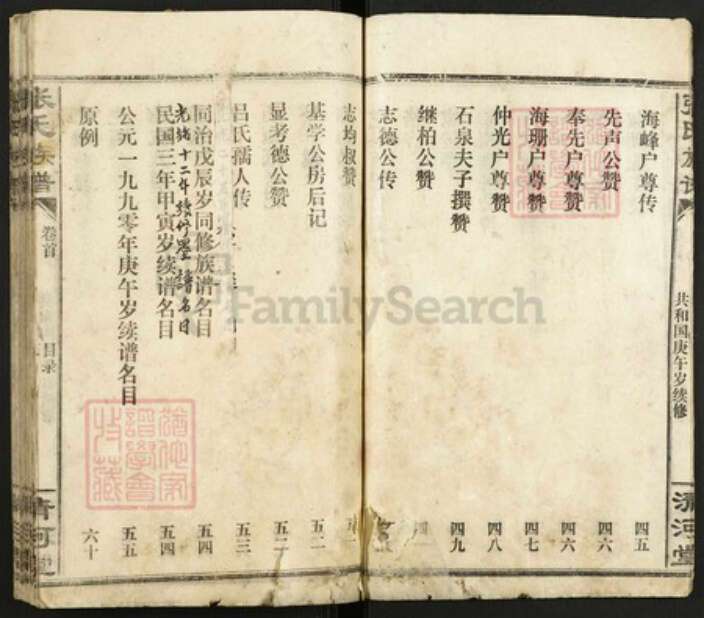 海峰户尊传 四五
先声公赞 四六
奉先户尊赞 四六
海珊户尊赞 四七
仲光户尊赞 四八
石泉夫子撰赞 四九
继柏公赞
志德公传
志均叔赞
基学公房后记 五二
显考德公赞 五二
吕氏孺人传 五三
同治戊辰岁同修族谱名目 五四
光绪十二年续修墨谱名目
民国三年甲寅岁续谱名目 五四
公元一九九零年庚午岁续谱名目 五五
原例 六十
张氏族谱
卷首
目录
清河堂
张氏族谱
共和国庚午岁续修
清河堂
FamilySearch